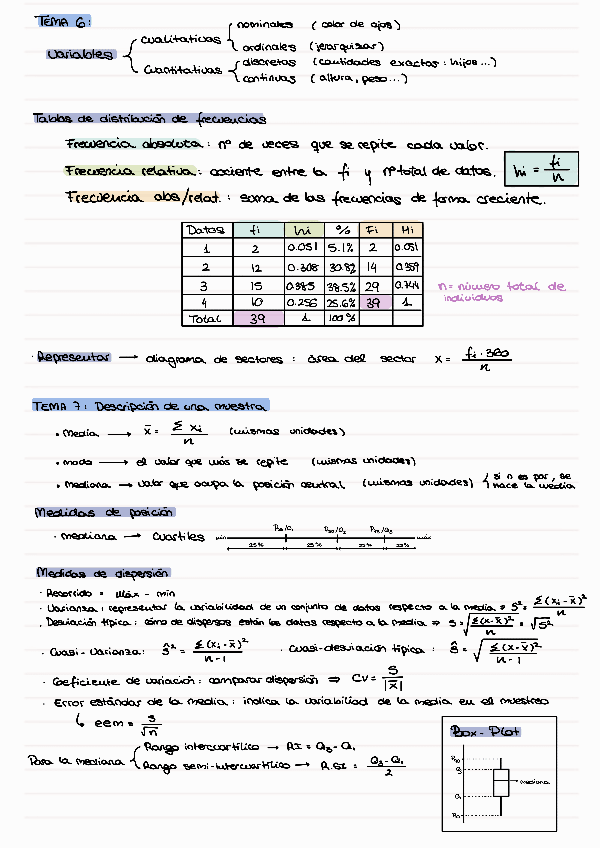 TEMA 6:
Variables
cualitativas
nominales (color de ojos)
ordinales (jerarquizar)
Cuantitativas
discretas (cantidades exactas: hijos...)
continuas (altura, peso...)
Tablas de distribución de frecuencias
Frecuencia absoluta: nº de veces que se repite cada valor.
Frecuencia relativa: cociente entre la fi y nº total de datos. hi = fi/n
Frecuencia abs/relat.: suma de las frecuencias de forma creciente.
Datos fi hi % Fi Hi
1 2 0.051 5.1% 2 0.051
2 12 0.308 30.8% 14 0.359
3 15 0.385 38.5% 29 0.744
4 10 0.256 25.6% 39 1
Total 39 1 100%
n= número total de individuos
· Representar → diagrama de sectores: área del sector x = fi·360/n
TEMA 7: Descripción de una muestra
· Media → x̄ = Σxi/n (mismas unidades)
· moda → el valor que más se repite (mismas unidades)
· mediana → valor que ocupa la posición central (mismas unidades) si n es par, se hace la media
Medidas de posición
· mediana → Cuartiles
25% 25% 25% 25%
Medidas de dispersión
· Recorrido = máx - min
· Varianza: representar la variabilidad de un conjunto de datos respecto a la media ⇒ S² = Σ(xi-x̄)²/n
· Desviación típica: cómo de dispersos están los datos respecto a la media ⇒ S = √(Σ(x-x̄)²/n) = √S²
· Cuasi-varianza: Ŝ² = Σ(xi-x̄)²/n-1 · Cuasi-desviación típica: Ŝ = √(Σ(x-x̄)²/n-1)
· Coeficiente de variación: comparar dispersión ⇒ CV = S/|x̄|
· Error estándar de la media: indica la variabilidad de la media en el muestreo
↳ eem = s/√n
Para la mediana
Rango intercuartílico → RI = Q3 - Q1
Rango semi-intercuartílico → R.SI = Q3-Q1/2
Box-Plot
mediana